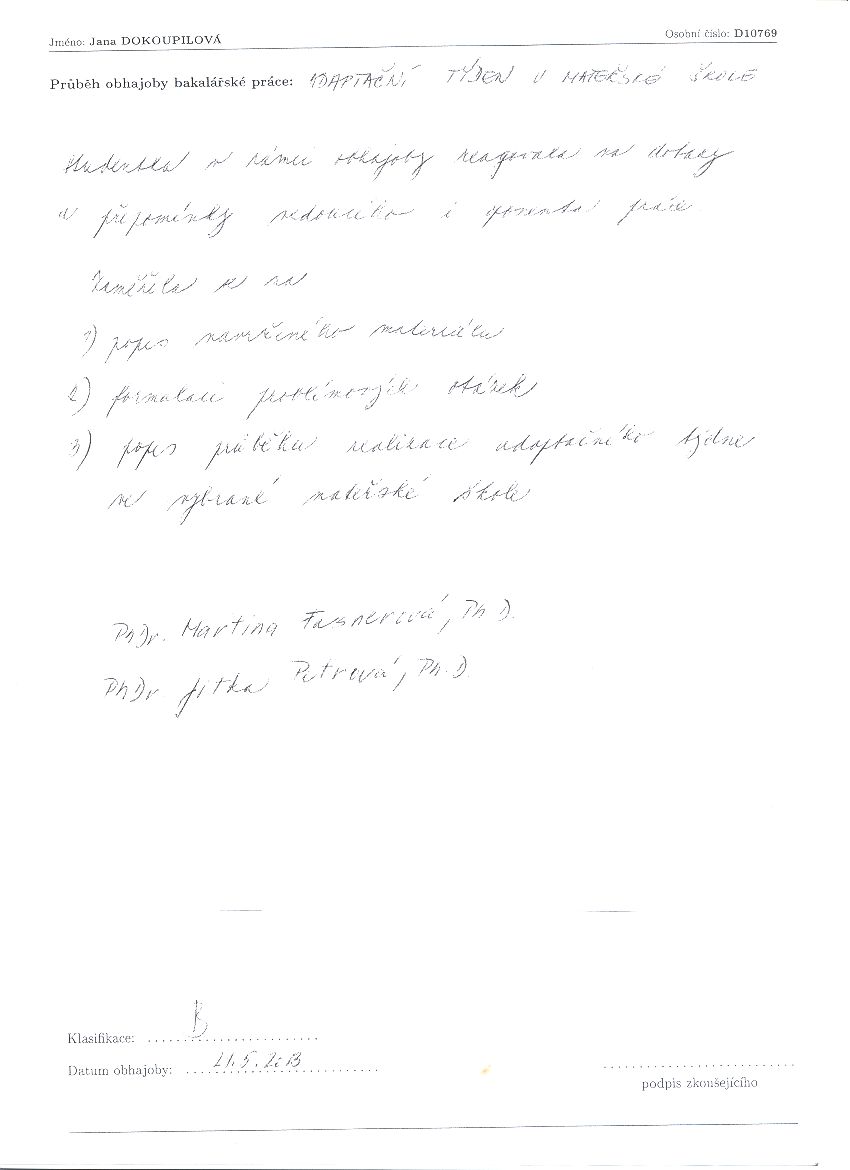 Jméno: Jana DOKOUPILOVÁ
Osobní číslo: D10769
Průběh obhajoby bakalářské práce: ADAPTAČNÍ TÝDEN V MATEŘSKÉ ŠKOLE
Studentka v rámci obhajoby reagovala na dotazy
a připomínky vedoucího i oponenta práce.
Zaměřila se na
1) popis navrženého materiálu
2) formulaci problémových otázek
3) popis průběhu realizace adaptačního týdne
ve vybrané mateřské škole
PhDr. Martina Fasnerová, Ph.D.
PhDr. Jitka Petrová, Ph.D.
Klasifikace: B
Datum obhajoby: 21.5.2013
podpis zkoušejícího